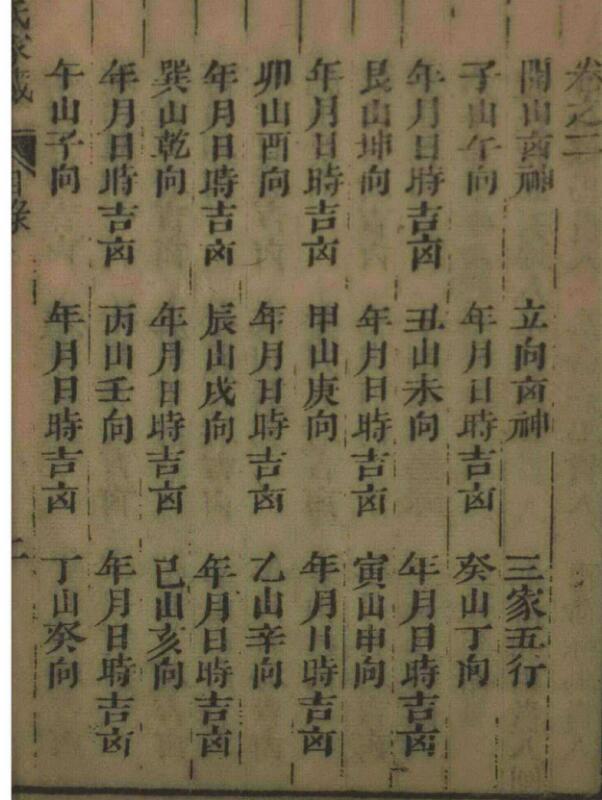 卷之二
開山㐫神 立向㐫神 三家五行
子山午向 年月日時吉㐫 癸山丁向
年月日時吉㐫 丑山未向 年月日時吉㐫
艮山坤向 年月日時吉㐫 寅山申向
年月日時吉㐫 甲山庚向 年月日時吉㐫
卯山酉向 年月日時吉㐫 乙山辛向
年月日時吉㐫 辰山戌向 年月日時吉㐫
巽山乾向 年月日時吉㐫 巳山亥向
年月日時吉㐫 丙山壬向 年月日時吉㐫
午山子向 年月日時吉㐫 丁山癸向
氏家藏 目錄